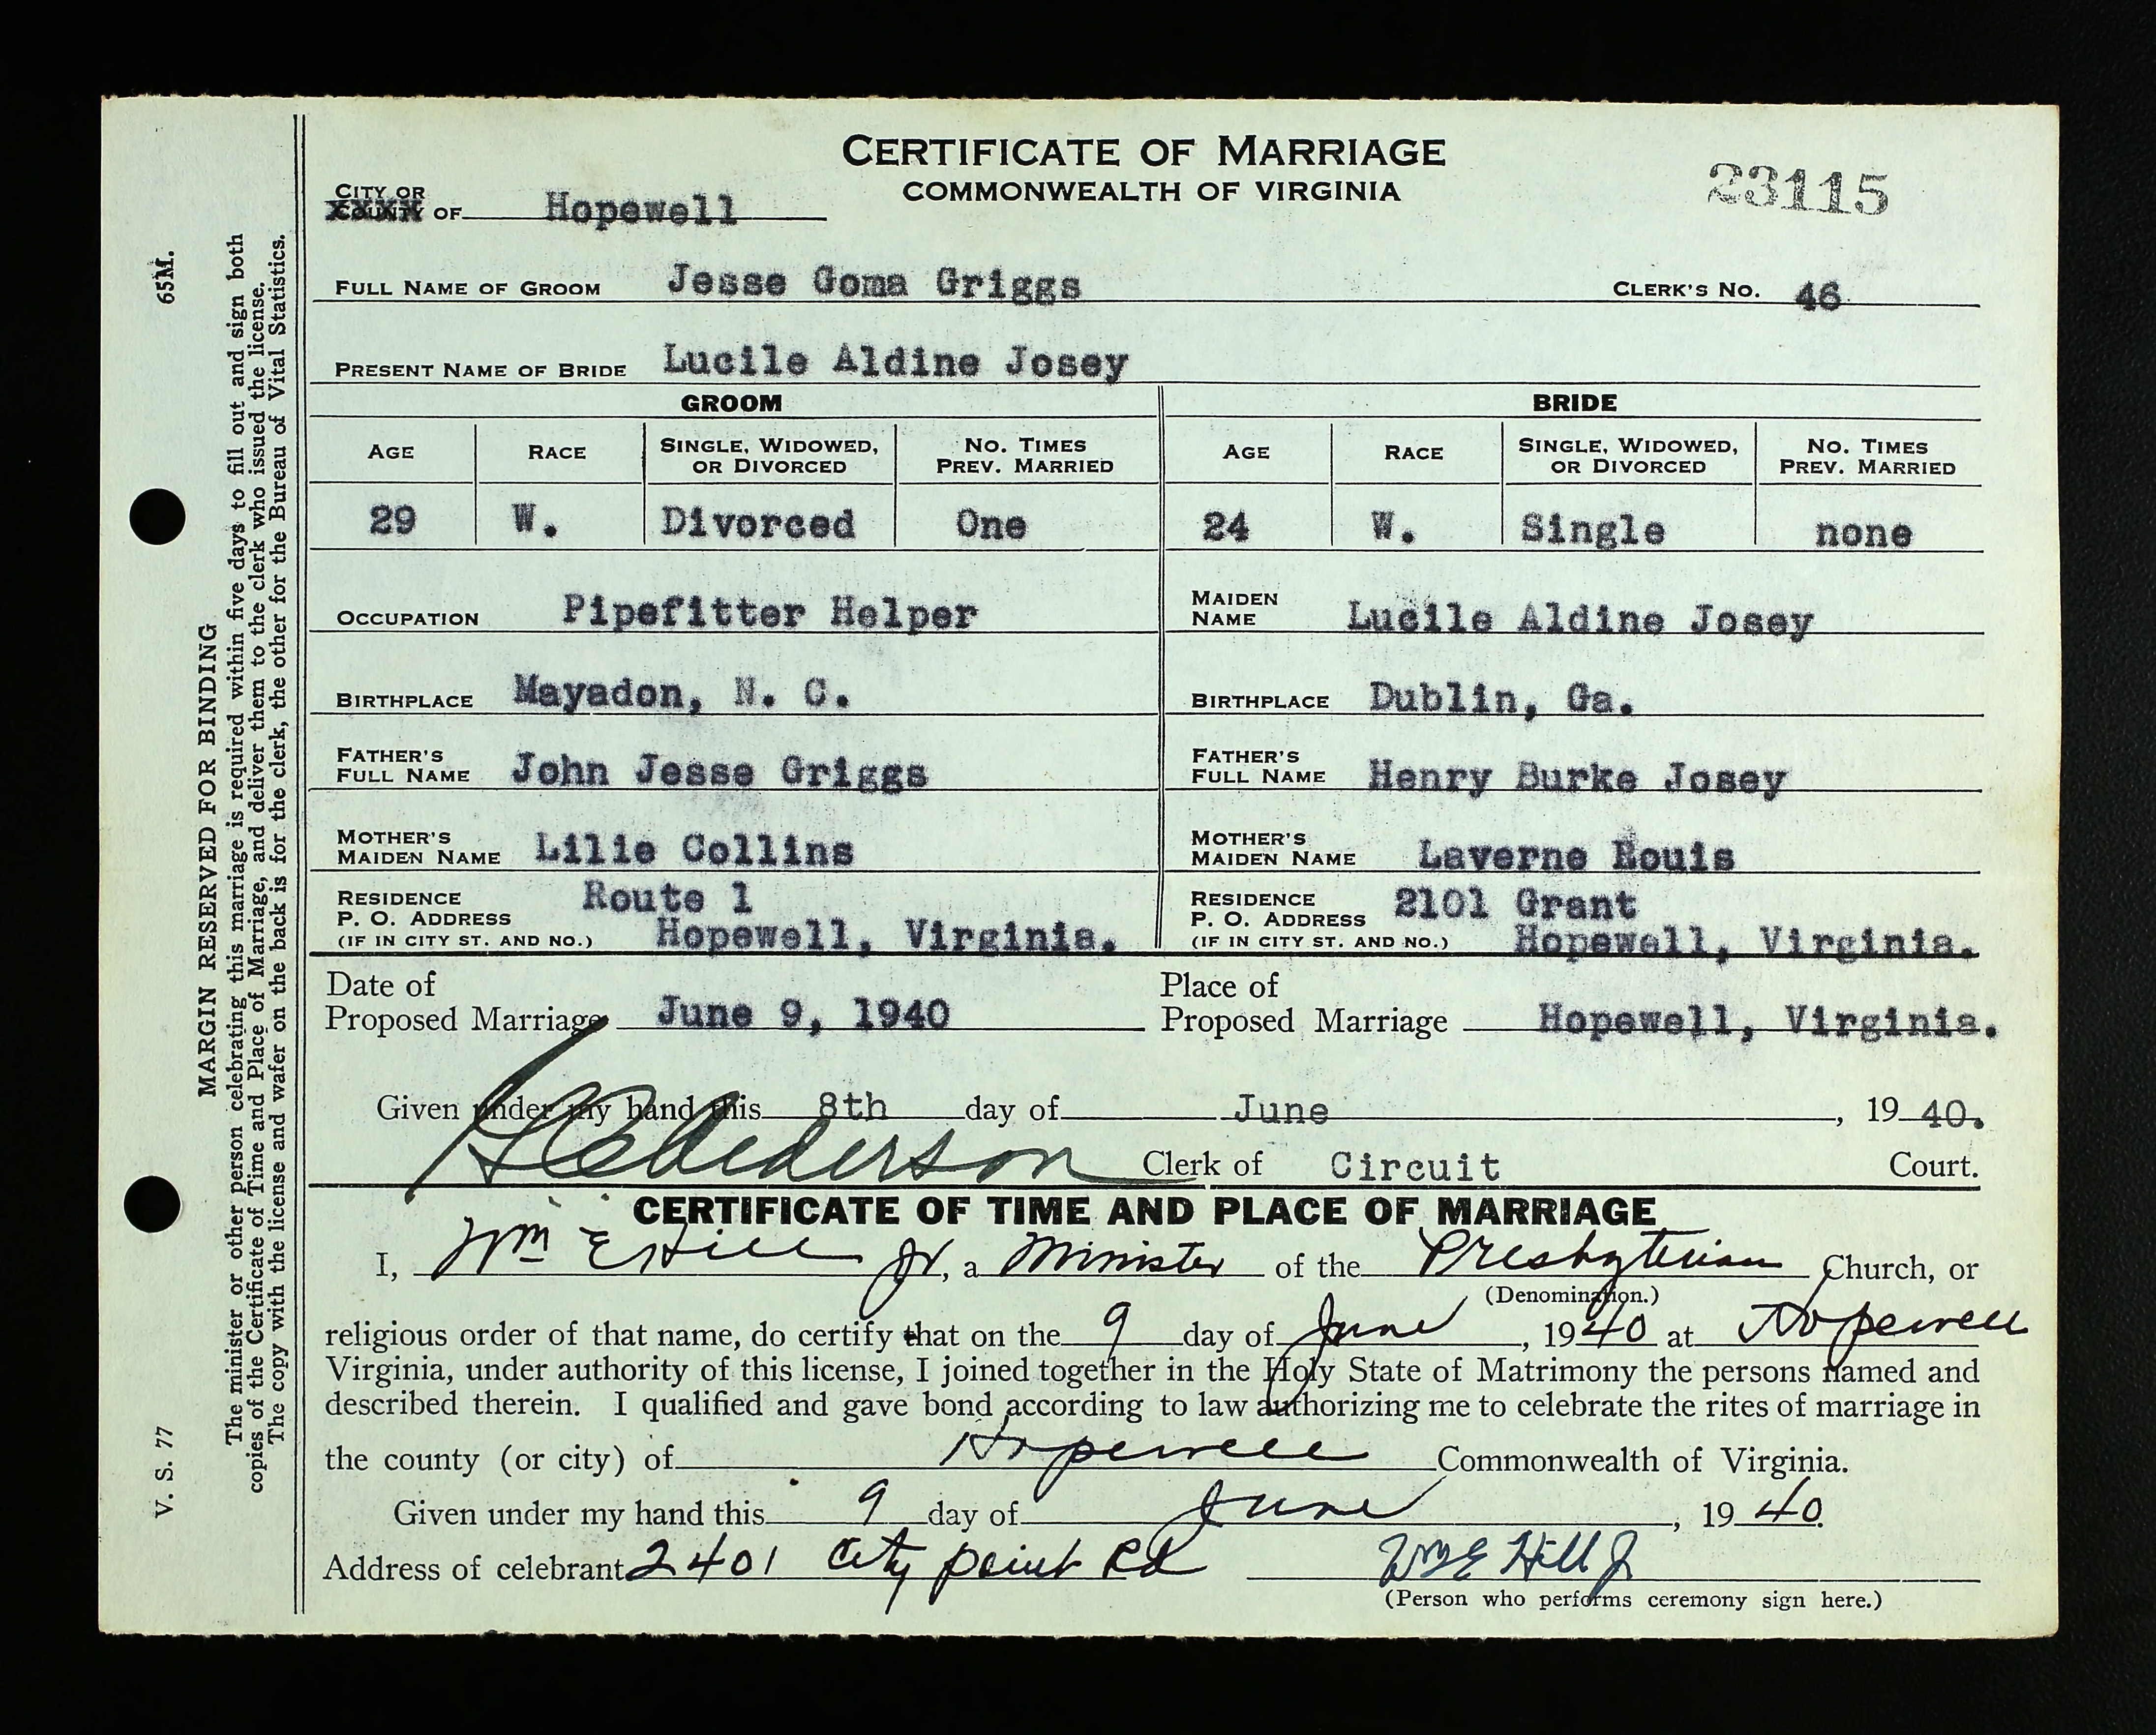 CERTIFICATE OF MARRIAGE
COMMONWEALTH OF VIRGINIA
23115
CITY OR
COUNTY OF Hopewell
FULL NAME OF GROOM Jesse Goma Griggs CLERK'S NO. 46
PRESENT NAME OF BRIDE Lucile Aldine Josey
GROOM BRIDE
AGE RACE SINGLE, WIDOWED, OR DIVORCED NO. TIMES PREV. MARRIED AGE RACE SINGLE, WIDOWED, OR DIVORCED NO. TIMES PREV. MARRIED
29 W. Divorced One 24 W. Single none
OCCUPATION Pipefitter Helper MAIDEN NAME Lucile Aldine Josey
BIRTHPLACE Mayadon, N. C. BIRTHPLACE Dublin, Ga.
FATHER'S FULL NAME John Jesse Griggs FATHER'S FULL NAME Henry Burke Josey
MOTHER'S MAIDEN NAME Lilie Collins MOTHER'S MAIDEN NAME Laverne Louis
RESIDENCE Route 1 RESIDENCE 2101 Grant
P. O. ADDRESS P. O. ADDRESS
(IF IN CITY ST. AND NO.) Hopewell, Virginia. (IF IN CITY ST. AND NO.) Hopewell, Virginia.
Date of Place of
Proposed Marriage June 9, 1940 Proposed Marriage Hopewell, Virginia.
Given under my hand this 8th day of June, 19 40.
Clerk of Circuit Court.
CERTIFICATE OF TIME AND PLACE OF MARRIAGE
I, Wm E Hill Jr, a Minister of the Presbyterian Church, or
(Denomination.)
religious order of that name, do certify that on the 9 day of June, 1940 at Hopewell
Virginia, under authority of this license, I joined together in the Holy State of Matrimony the persons named and
described therein. I qualified and gave bond according to law authorizing me to celebrate the rites of marriage in
the county (or city) of Hopewell Commonwealth of Virginia.
Given under my hand this 9 day of June, 19 40
Address of celebrant 2401 City point Rd Wm E Hill Jr
(Person who performs ceremony sign here.)
V. S. 77 65M.
MARGIN RESERVED FOR BINDING
The minister or other person celebrating this marriage is required within five days to fill out and sign both
copies of the Certificate of Time and Place of Marriage, and deliver them to the clerk who issued the license.
The copy with the license and wafer on the back is for the clerk, the other for the Bureau of Vital Statistics.